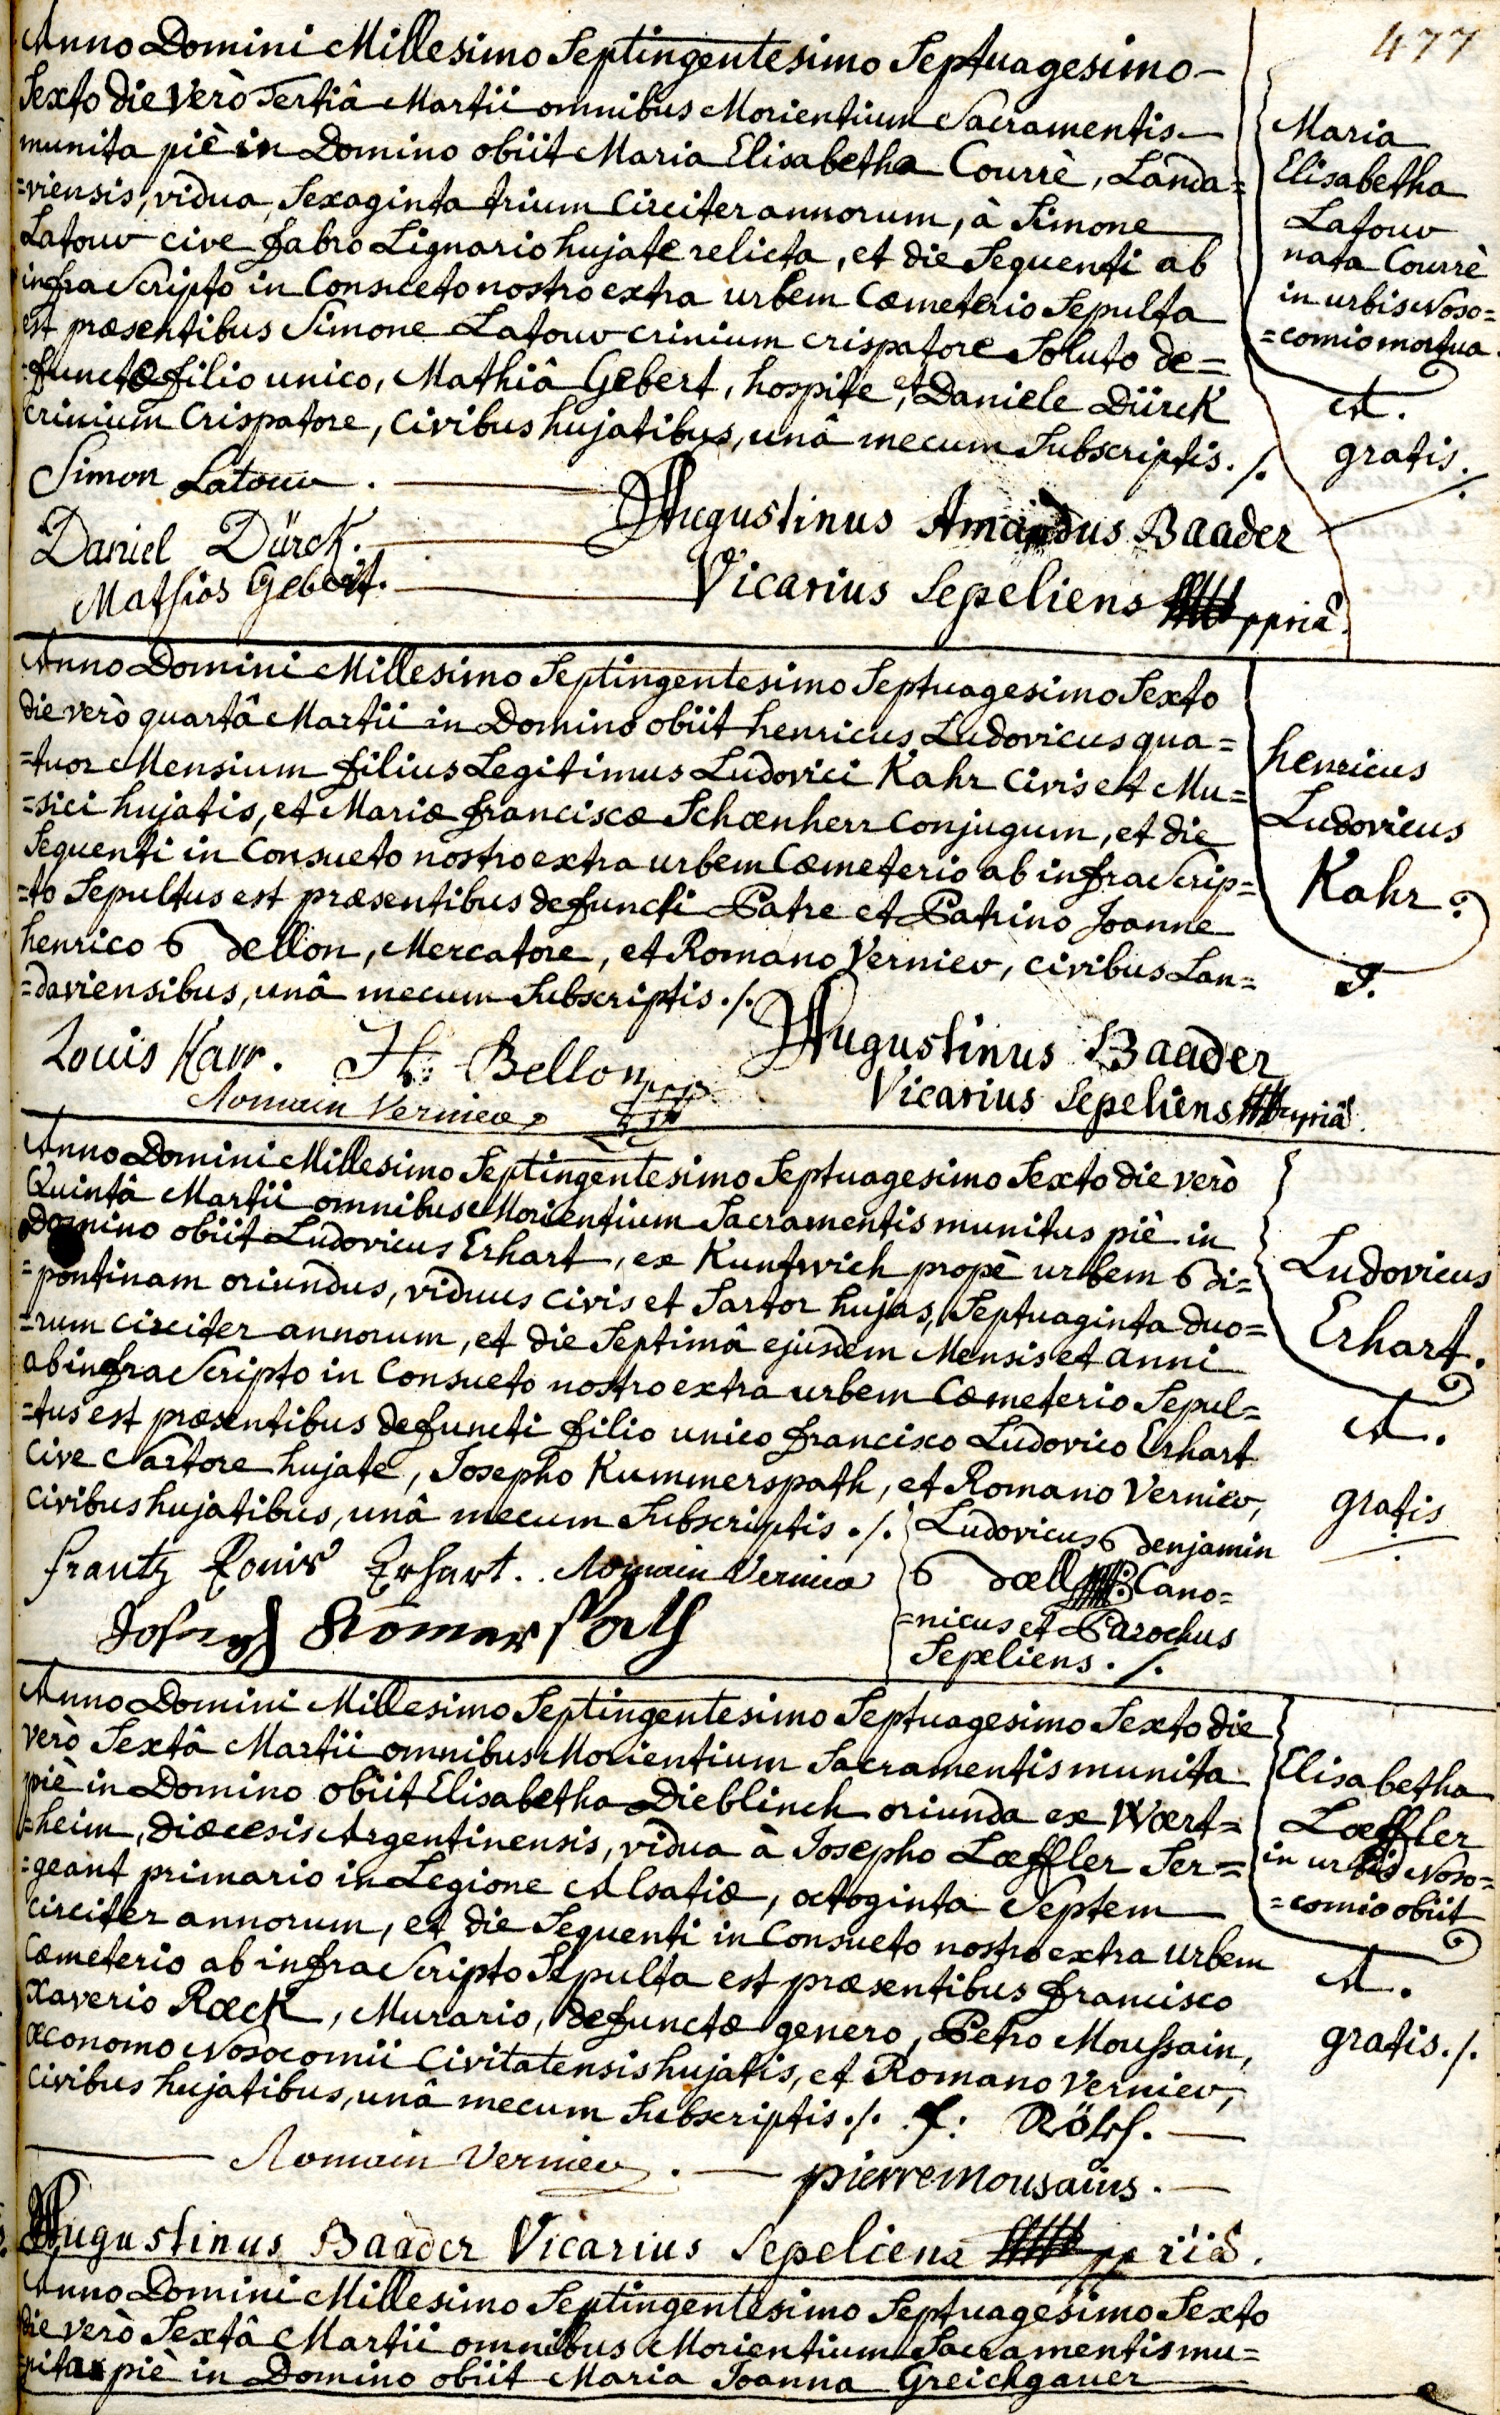 477
Anno Domini Millesimo Septingentesimo Septuagesimo
Sexto die verò Tertiâ Martii omnibus Morientium Sacramentis
munita piè in Domino obiit Maria Elisabetha Courrè, Landa=
=viensis, vidua, Sexaginta trium circiter annorum, à Simone
Latour cive fabro Lignario hujate relicta, et die Sequenti ab
infra Scripto in Consueto nostro extra urbem Cœmeterio Sepulta
est præsentibus Simone Latour crinium crispatore Soluto de=
=functæ filio unico, Mathiâ Gebert, hospite, et Daniele Dürck
crinium Crispatore, civibus hujatibus, unâ mecum Subscriptis./.
Simon Latour.
Augustinus Amandus Baader
Daniel Dürck.
Vicarius Sepeliens ppriâ.
Mathias Gebert.
Maria
Elisabetha
Latour
nata Courrè
in urbis Noso=
=comio mortua.
A.
gratis./.
Anno Domini Millesimo Septingentesimo Septuagesimo Sexto
die verò quartâ Martii in Domino obiit henricus Ludovicus qua=
=tuor Mensium filius Legitimus Ludovici Kahr civis et Mu=
=sici hujatis, et Mariæ franciscæ Schœnherr conjugum, et die
Sequenti in Consueto nostro extra urbem Cœmeterio ab infra Scrip=
=to Sepultus est præsentibus defuncti Patre et Patrino Joanne
henrico Bellon, Mercatore, et Romano Vernier, civibus Lan=
=daviensibus, unâ mecum Subscriptis./.
Augustinus Baader
Louis Karr. H: Bellon
Romain Vernier
Vicarius Sepeliens ppriâ.
henricus
Ludovicus
Kahr.
J.
Anno Domini Millesimo Septingentesimo Septuagesimo Sexto die verò
Quintâ Martii omnibus Morientium Sacramentis munitus piè in
Domino obiit Ludovicus Erhart, ex Kuntwich propè urbem Bi=
=pontinam oriundus, viduus civis et Sartor hujas, Septuaginta duo=
=rum circiter annorum, et die Septimâ ejusdem Mensis et anni
ab infra Scripto in Consueto nostro extra urbem Cœmeterio Sepul=
=tus est præsentibus defuncti filio unico francisco Ludovico Erhart
Cive Sartore hujate, Josepho Kummerspath, et Romano Vernier,
civibus hujatibus, unâ mecum Subscriptis./.
Ludovicus Benjamin
frantz Louis Erhart. Romain Vernier
Bœll Cano=
=nicus et Parochus
Joseph Komerspath
Sepeliens./.
Ludovicus
Erhart.
A.
gratis
Anno Domini Millesimo Septingentesimo Septuagesimo Sexto die
verò Sextâ Martii omnibus Morientium Sacramentis munita
piè in Domino obiit Elisabetha Dieblinch oriunda ex Wœrt=
=heim, diœcesis Argentinensis, vidua à Josepho Lœffler Ser=
=geant primario in Legione Alsatiæ, octoginta Septem
circiter annorum, et die Sequenti in Consueto nostro extra urbem
Cœmeterio ab infra Scripto Sepulta est præsentibus francisco
Xaverio Rœck, Murario, defunctæ genero, Petro Moussain,
œconomo Nosocomii Civitatensis hujatis, et Romano Vernier,
civibus hujatibus, unâ mecum Subscriptis./.
Romain Vernier.
pierre Mousains.
Augustinus Baader Vicarius Sepeliens
Elisabetha
Lœffler
in urbis Noso=
=comio obiit
A.
gratis./.
Anno Domini Millesimo Septingentesimo Septuagesimo Sexto
die verò Sextâ Martii omnibus Morientium Sacramentis mu=
=nita piè in Domino obiit Maria Joanna Greichgauer